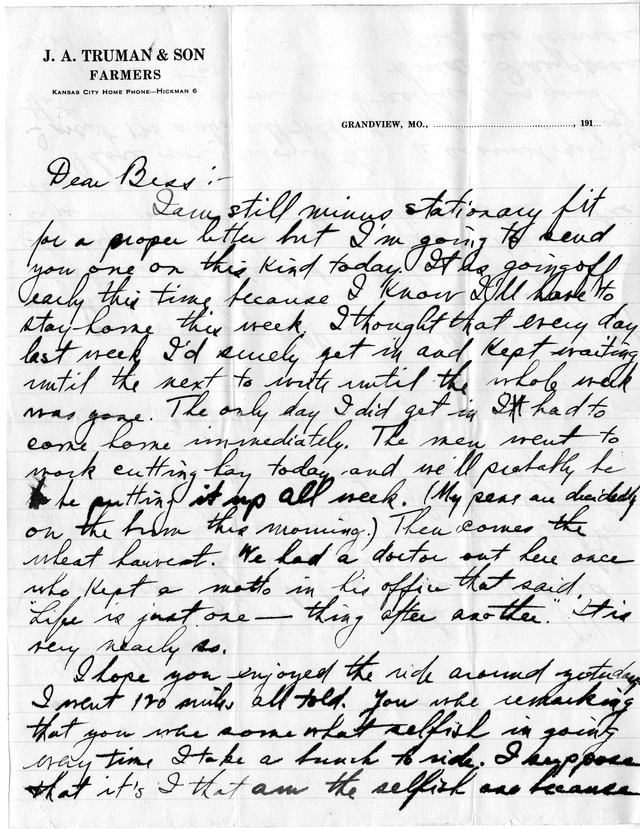 J. A. TRUMAN & SON
FARMERS
KANSAS CITY HOME PHONE---HICKMAN 6
GRANDVIEW, MO., ........................................, 191...
Dear Bess :-
I am still minus stationary fit
for a proper letter but I'm going to send
you one on this kind today. It is going off
early this time because I know I'll have to
stay home this week. I thought that every day
last week I'd surely get in and kept waiting
until the next to write until the whole week
was gone. The only day I did get in I had to
come home immediately. The men went to
work cutting hay today and we'll probably be
be putting it up all week. (My pens are decidedly
on the bum this morning.) Then comes the
wheat harvest. We had a doctor out here once
who kept a motto in his office that said,
"Life is just one — thing after another." It is
very nearly so.
I hope you enjoyed the ride around yesterday
I went 120 miles all told. You were remarking
that you were somewhat selfish in going
every time I take a bunch to ride. I suppose
that it's I that am the selfish one because